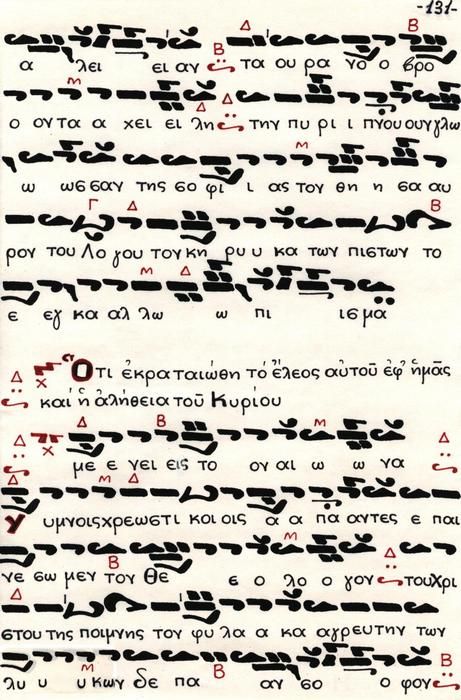 -131-
α λει ει αν τα ου ρα νο ο βρο
ο ον τα α χει ει λη την πυ ρι ι πνου ου γλω
ω ωσσαν της σο φι ι ας τον θη η σα αυ
ρον του Λο γου τον κη ρυ υ κα των πιστων το
ε εγ κα αλ λω ω πι ισμα
Στ
Ότι ἐκραταιώθη τό ἔλεος αὐτοῦ ἐφ' ἡμᾶς
καί ἡ ἀλήθεια τοῦ Κυρίου
με ε νει εις το ον αι ω ω να
υ υμνοις χρεωστι κοι οις α α πα αντες ε παι
νε σω μεν τον Θε ε ο λο ο γον του Χρι
στου της ποιμνης τον φυ λα α κα αγρευτην των
λυ υ υ κων δε πα αν σο ο φον